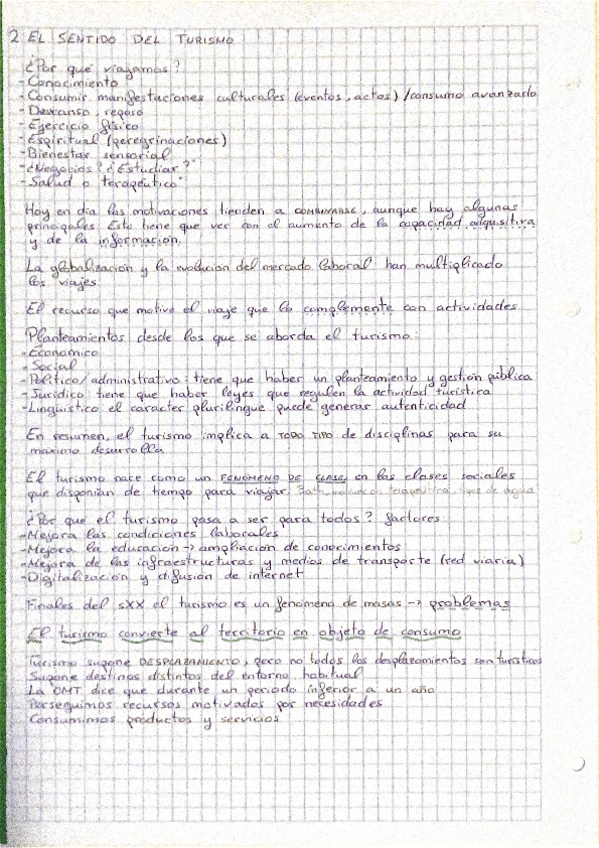 2. EL SENTIDO DEL TURISMO
¿Por qué viajamos?
- Conocimiento
- Consumir manifestaciones culturales (eventos, actos) / consumo avanzado
- Descanso, reposo
- Ejercicio físico
- Espiritual (peregrinaciones)
- Bienestar sensorial
- ¿Negocios? ¿Estudiar?
- Salud o terapéutico
Hoy en día las motivaciones tienden a COMBINARSE, aunque hay algunas
principales. Esto tiene que ver con el aumento de la capacidad adquisitiva
y de la información.
La globalización y la evolución del mercado laboral han multiplicado
los viajes
El recurso que motive el viaje que lo complemente con actividades
Planteamientos desde los que se aborda el turismo:
- Económico
- Social
- Político/administrativo: tiene que haber un planteamiento y gestión pública
- Jurídico tiene que haber leyes que regulen la actividad turística
- Lingüístico el carácter plurilingüe puede generar autenticidad
En resumen, el turismo implica a TODO TIPO de disciplinas para su
máximo desarrollo
El turismo nace como un FENÓMENO DE CLASE, en las clases sociales
que disponían de tiempo para viajar.
¿Por qué el turismo pasa a ser para todos? factores
- Mejora las condiciones laborales
- Mejora la educación -> ampliación de conocimientos
- Mejora de las infraestructuras y medios de transporte (red viaria)
- Digitalización y difusión de internet
Finales del sXX el turismo es un fenómeno de masas -> problemas
El turismo convierte al territorio en objeto de consumo
Turismo supone DESPLAZAMIENTO, pero no todos los desplazamientos son turísticos
Supone destinos distintos del entorno habitual
La OMT dice que durante un periodo inferior a un año
Perseguimos recursos motivados por necesidades
Consumimos productos y servicios